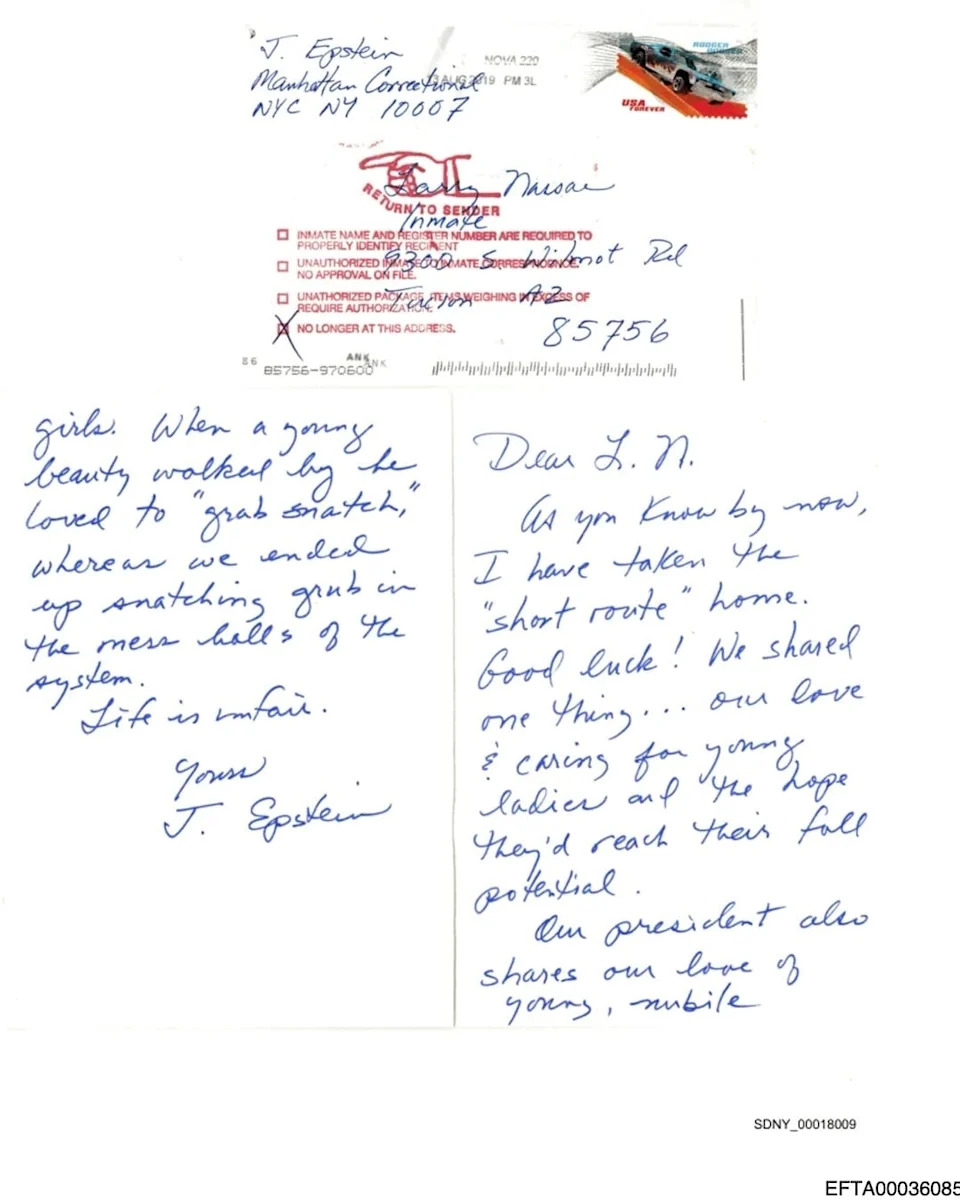 J. Epstein
Manhattan Correctional
NYC NY 10007
NOVA 220
13 AUG 2019 PM 3L
RODGER
USA
FOREVER
Larry Nassar
Inmate
9300 S. Wilmot Rd
Tucson AZ
85756
RETURN TO SENDER
INMATE NAME AND REGISTER NUMBER ARE REQUIRED TO
PROPERLY IDENTIFY RECIPIENT
UNAUTHORIZED INMATE TO INMATE CORRESPONDENCE.
NO APPROVAL ON FILE.
UNATHORIZED PACKAGE, ITEMS WEIGHING IN EXCESS OF
REQUIRE AUTHORIZATION.
NO LONGER AT THIS ADDRESS.
86
ANK
ANK
85756-970600
Dear L. N.
As you know by now,
I have taken the
"short route" home.
Good luck! We shared
one thing... our love
& caring for young
ladies and the hope
they'd reach their full
potential.
Our president also
shares our love of
young, nubile
girls. When a young
beauty walked by he
loved to "grab snatch,"
whereas we ended
up snatching grub in
the mess halls of the
system.
Life is unfair.
Yours
J. Epstein
SDNY_00018009
EFTA00036085